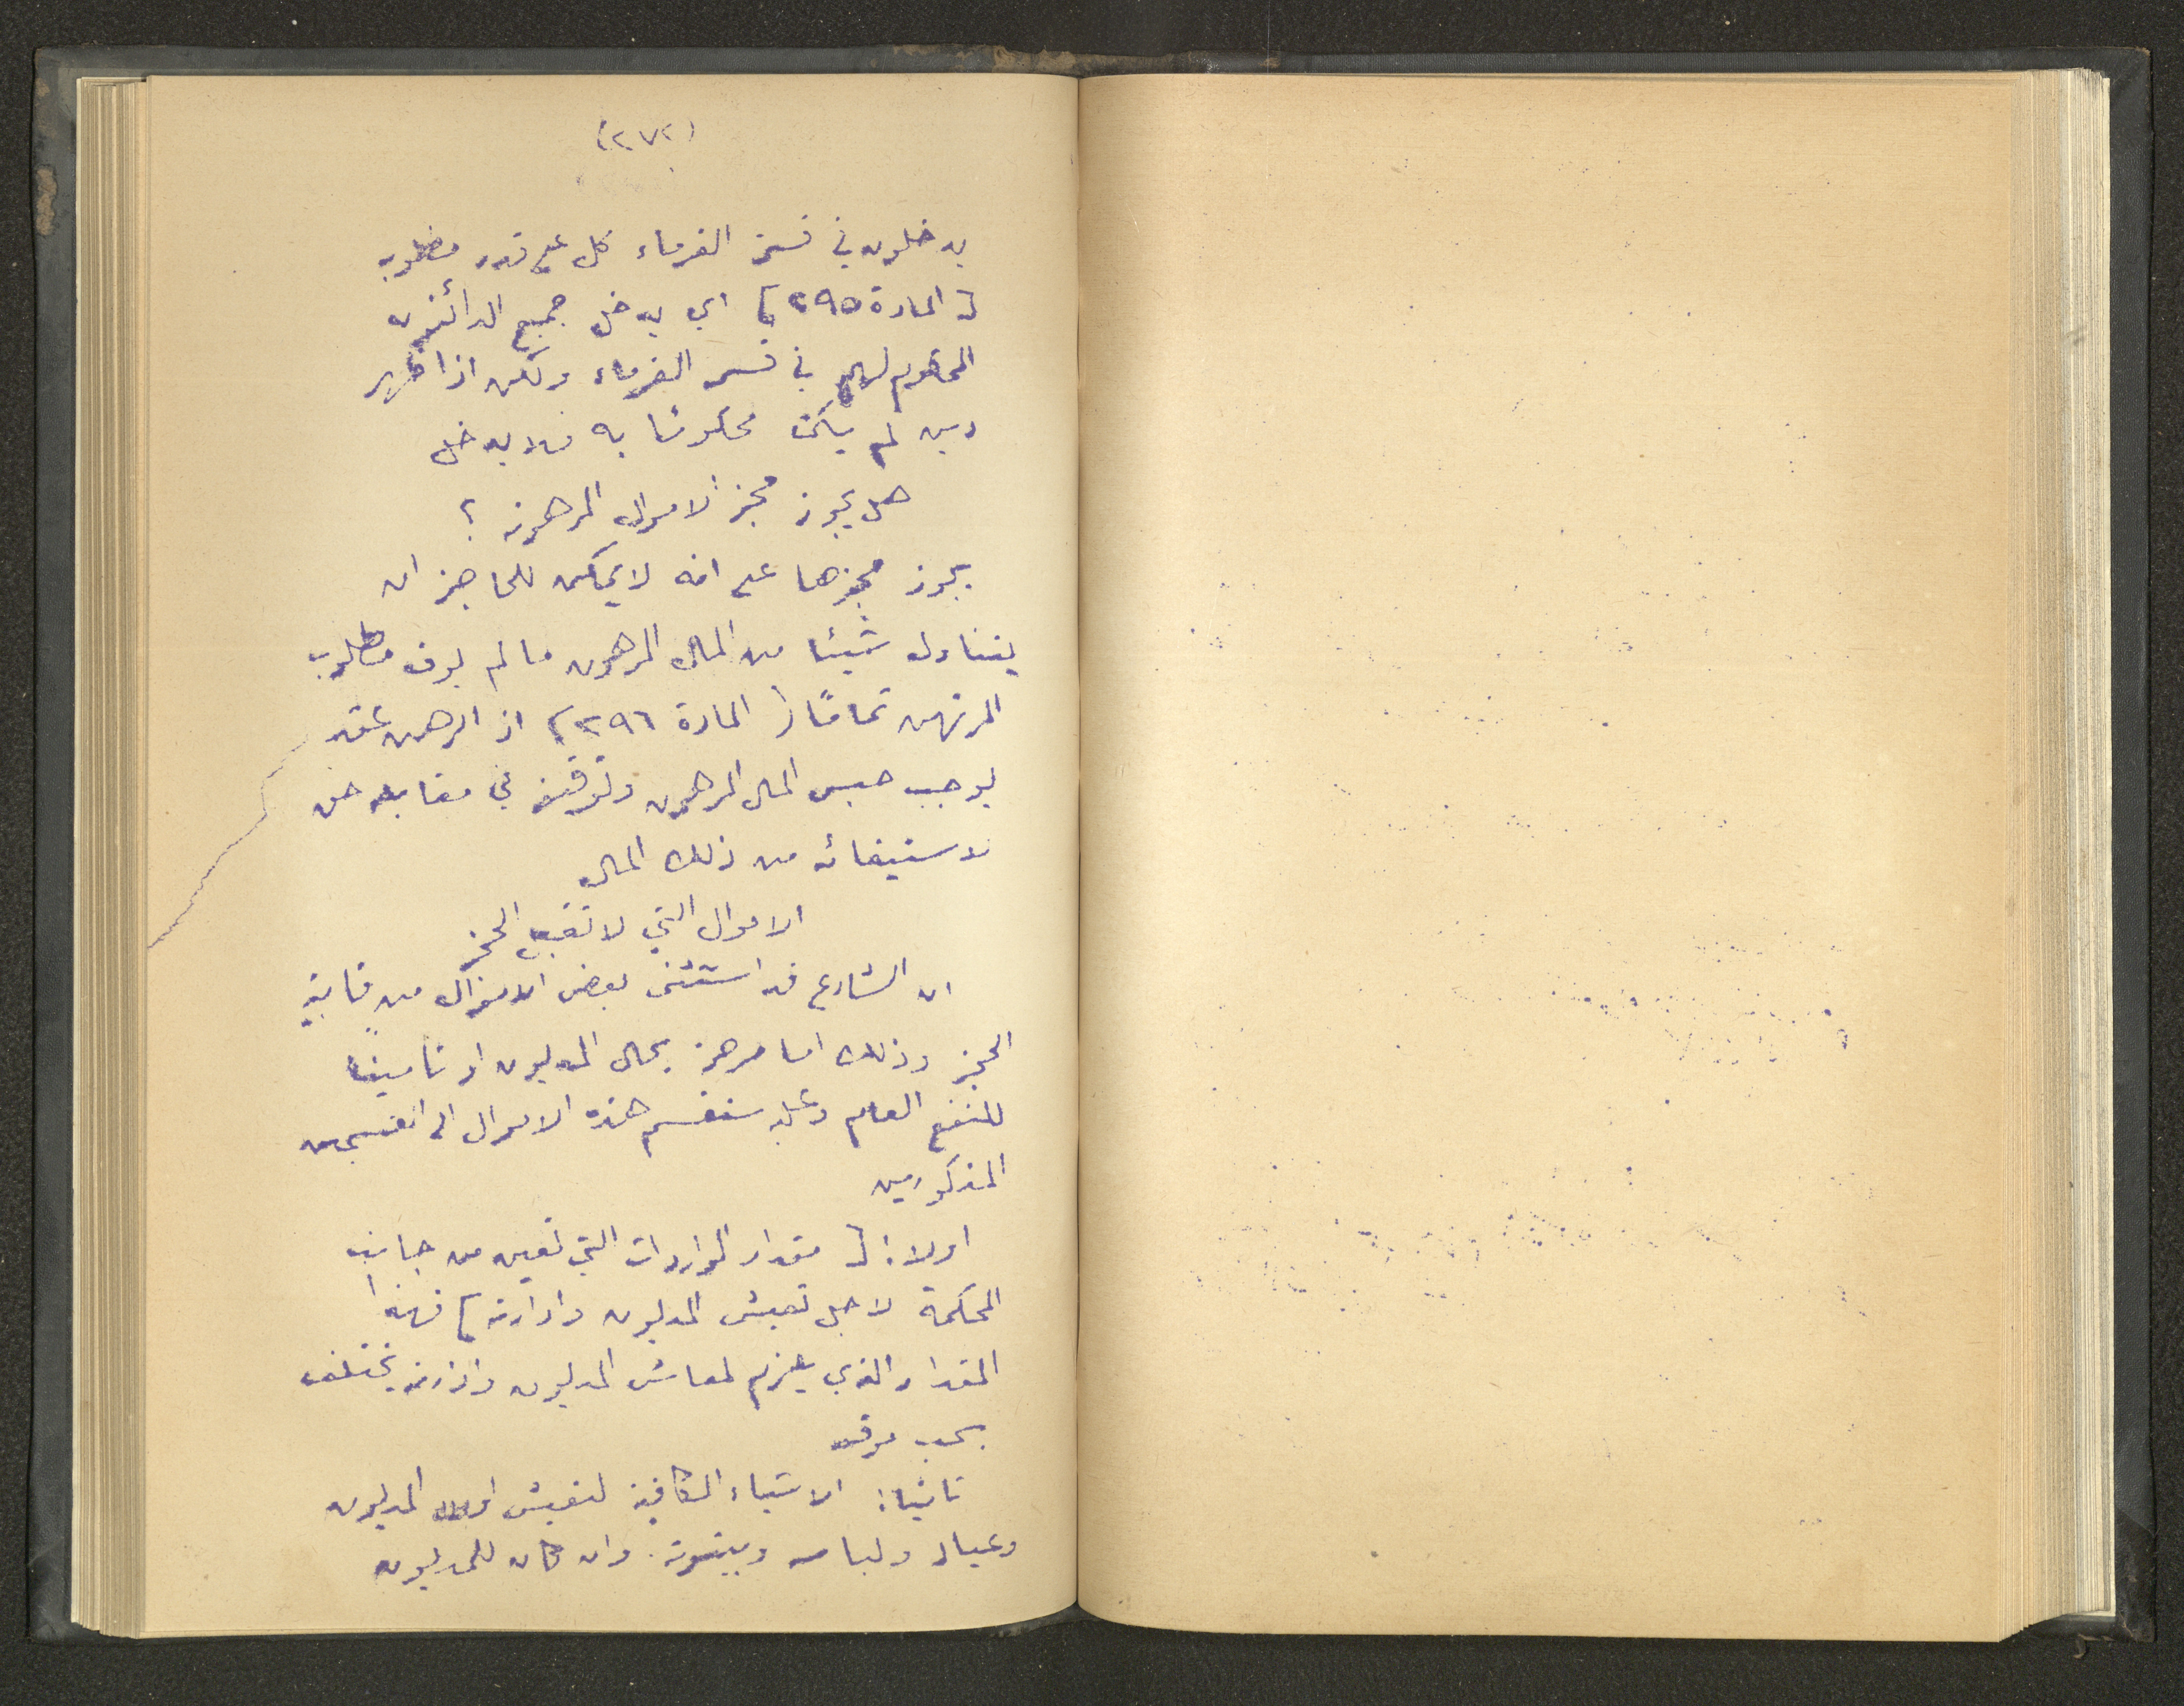 (٢٧٢)
يدخلون في قسمة الغرماء كل على قدر مطلوبه
[المادة ٢٩٥] اي يدخل جميع الدائنين
المحكوم لهم في قسمة الغرماء ولكن اذا ظهر
دين لم يكن محكوما به فلا يدخل
هل يجوز حجز الاموال المرهونة ؟
يجوز حجزها على انه لا يمكن للحاجز ان
يتناول شيئا من المال المرهون ما لم يوف مطلوب
المرتهن تماماً (المادة ٢٩٦) اذ الرهن عقد
يوجب حبس المال المرهون وتوقيفه في مقابلة حق
لاستيفائه من ذلك المال
الاموال التي لا تقبل الحجز
ان الشارع قد استثنى بعض الاموال من قابلية
الحجز وذلك اما مرحمة بحال المديون او تاميناً
للنفع العام وعليه ستقسم هذه الاموال الى القسمين
المذكورين
اولا: [مقدار الواردات التي تعين من جانب
المحكمة لاجل تعيش المديون وادارته] فهذا
المقدار الذي يلزم لمعاش المديون وادارته يختلف
بحسب موقعه
ثانيا: الاشياء الكافية لتعيش المديون
وعياله ولباسه وبيتوتته. وان كان للمديون